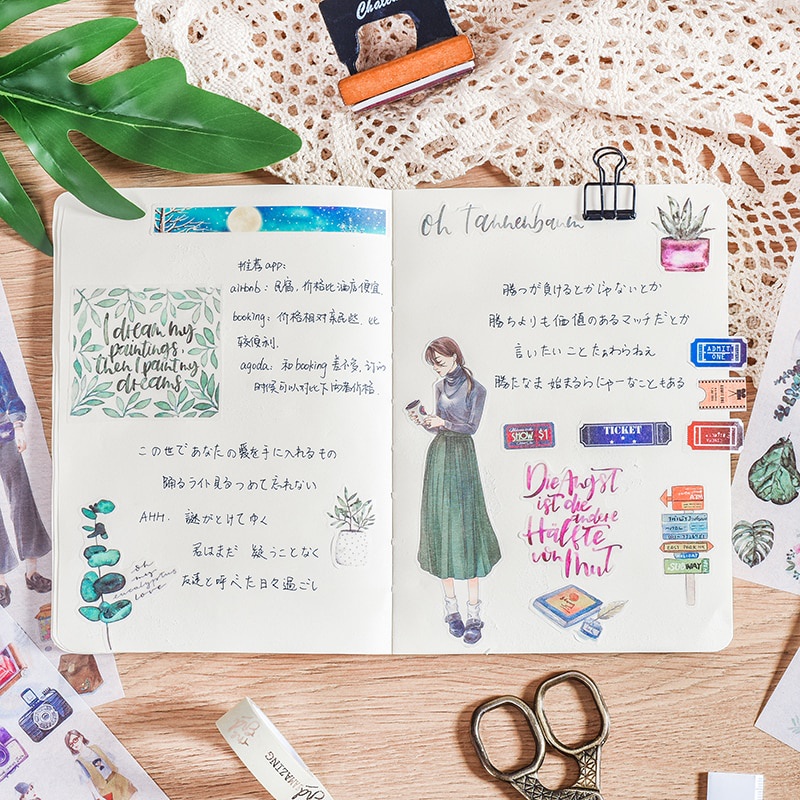 Chatea
oh Tannenbaum
推荐app:
airbnb: 民宿,价格比酒店便宜
booking: 价格相对亲民些,比
较便利.
agoda: 和booking差不多,订的
时候可以对比下两者价格.
I dream my
paintings,
then I paint my
dreams
この世であなたの愛を手に入れるもの
踊るライト見るつめて忘れない
AHH. 謎がとけてゆく
君はまだ 疑うことなく
友達と呼べた日々過ごし
oh
my
eucalyptus
love
勝つが負けるとかじゃないとか
勝ちよりも価値のあるマッチだとか
言いたいことたぁわらねぇ
勝たなま 始まるらにゃーなこともある
ADMIT
ONE
SHOW $1
TICKET
Die Angst
ist die
andere
Hälfte
von Mut
EAST PARK
SUBWAY
AMAZING